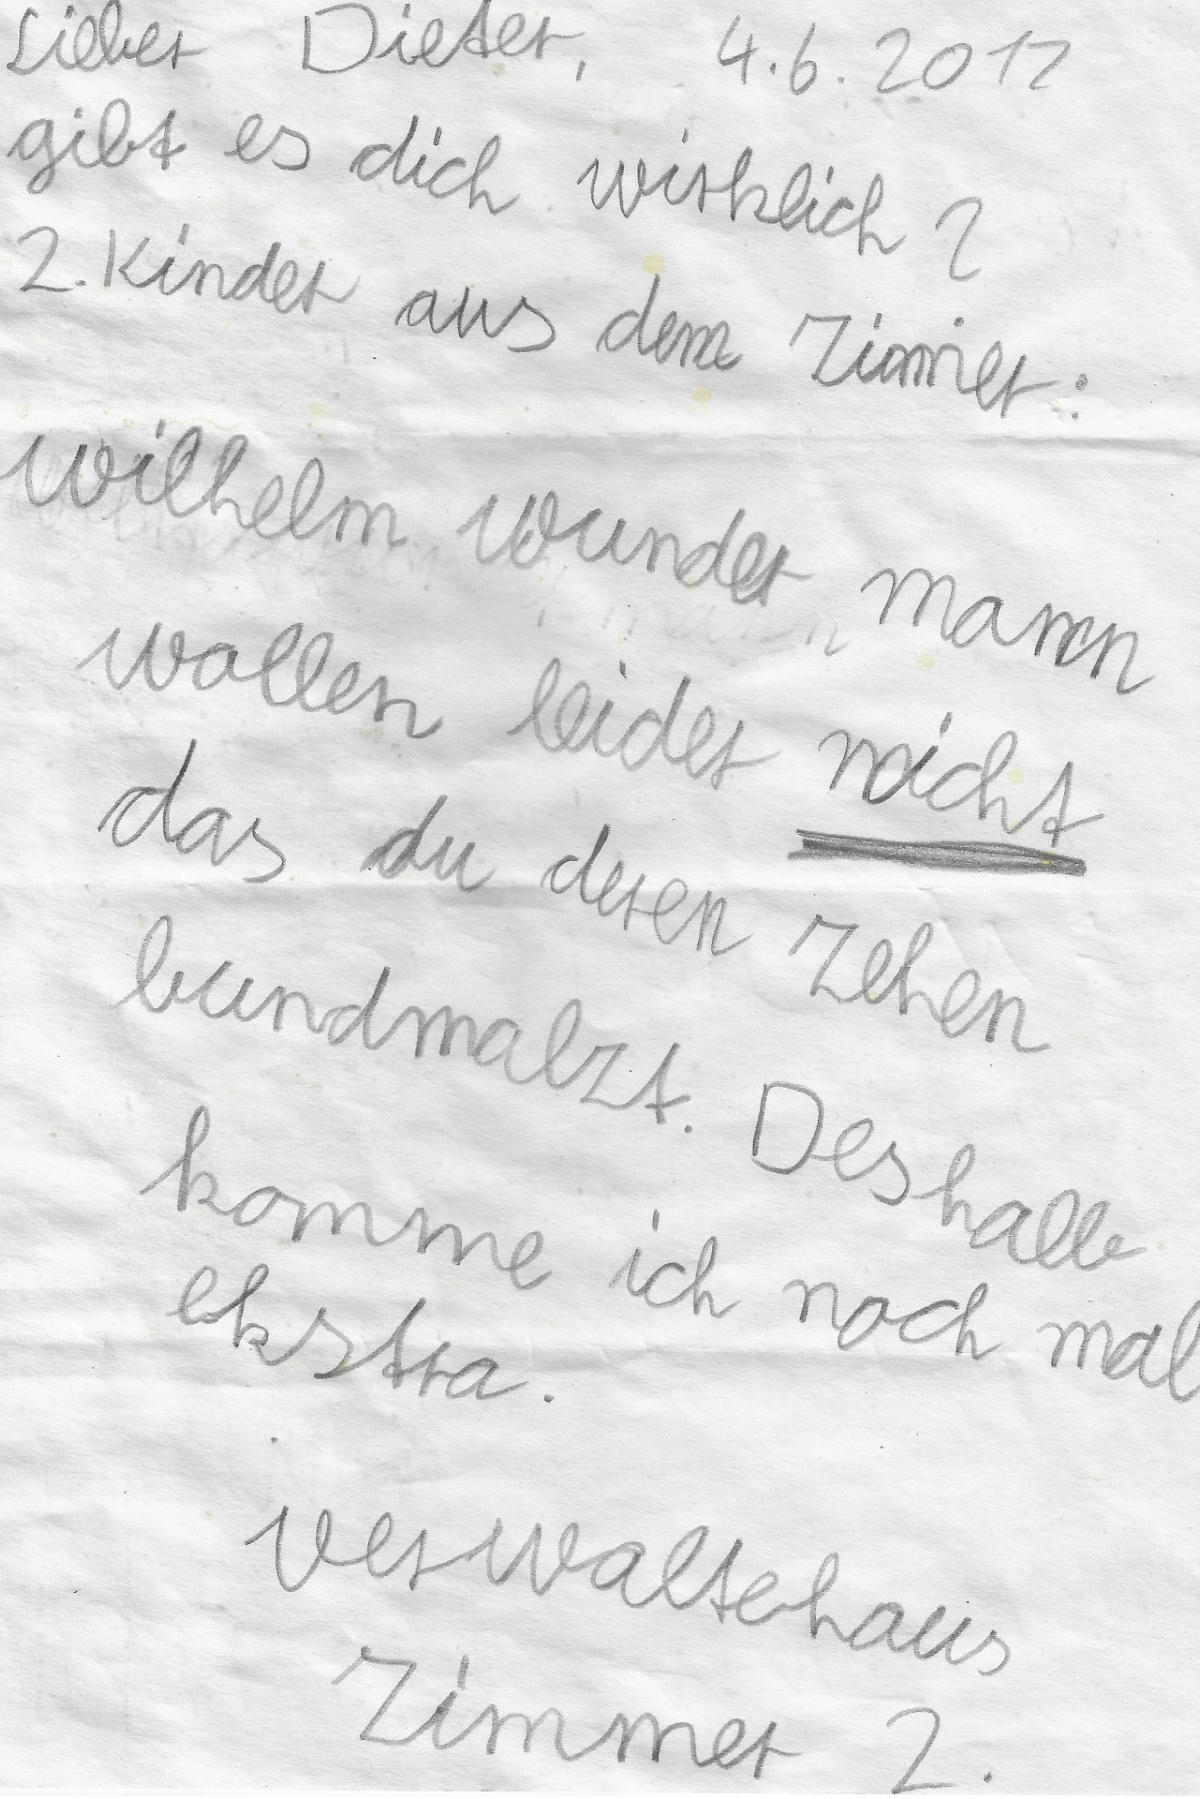 Lieber Dieter, 4.6.2012
gibt es dich wirklich?
2. Kinder aus dem Zimmer:
Wilhelm Wunder mann
wollen leider nicht
das du deren Zehen
bundmalzt. Deshalb
komme ich noch mal
ekstra.
Verwalterhaus
Zimmer 2.